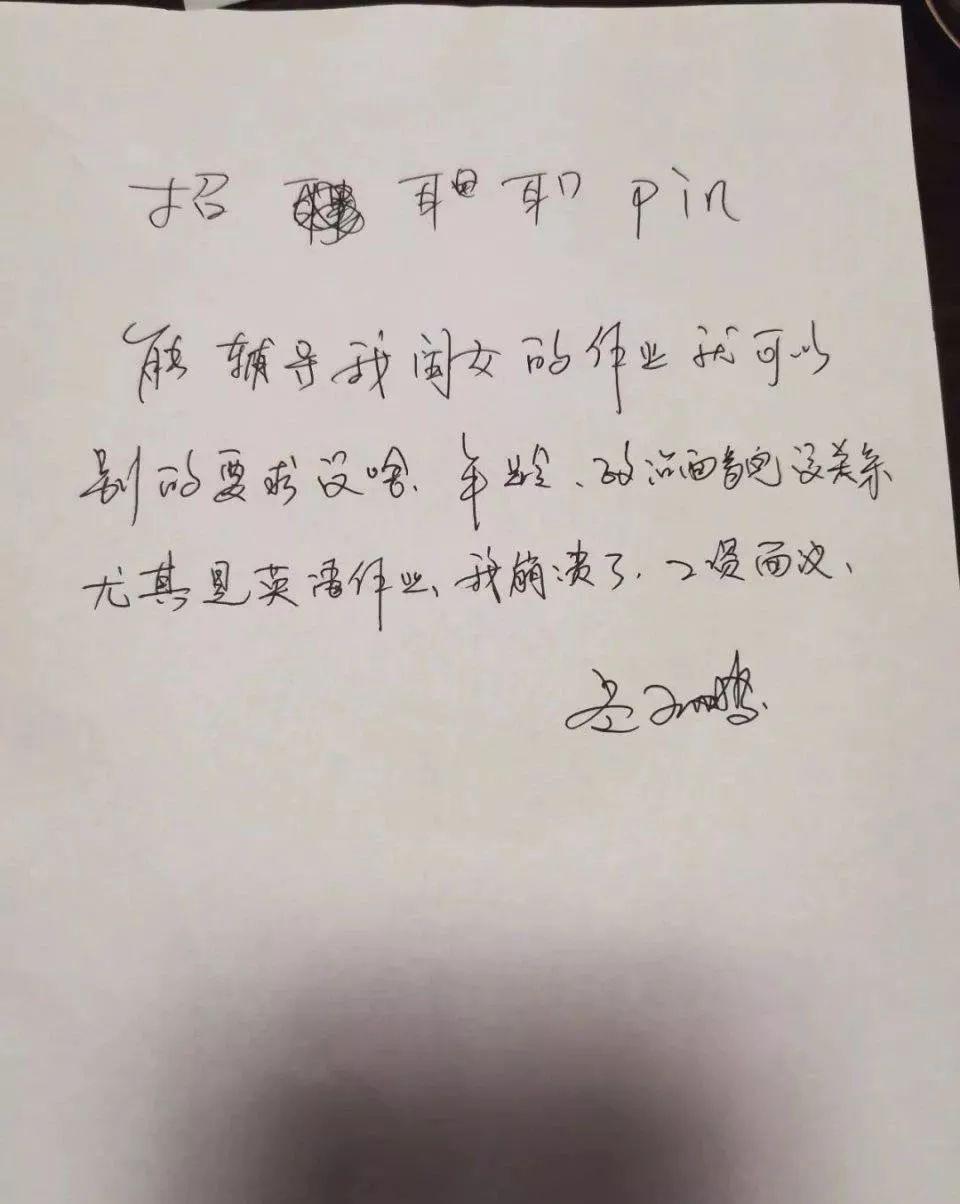 招 pin
能辅导我闺女的作业就可以
别的要求没啥、年龄、政治面貌没关系
尤其是英语作业、我崩溃了、工资面议、
岳云鹏